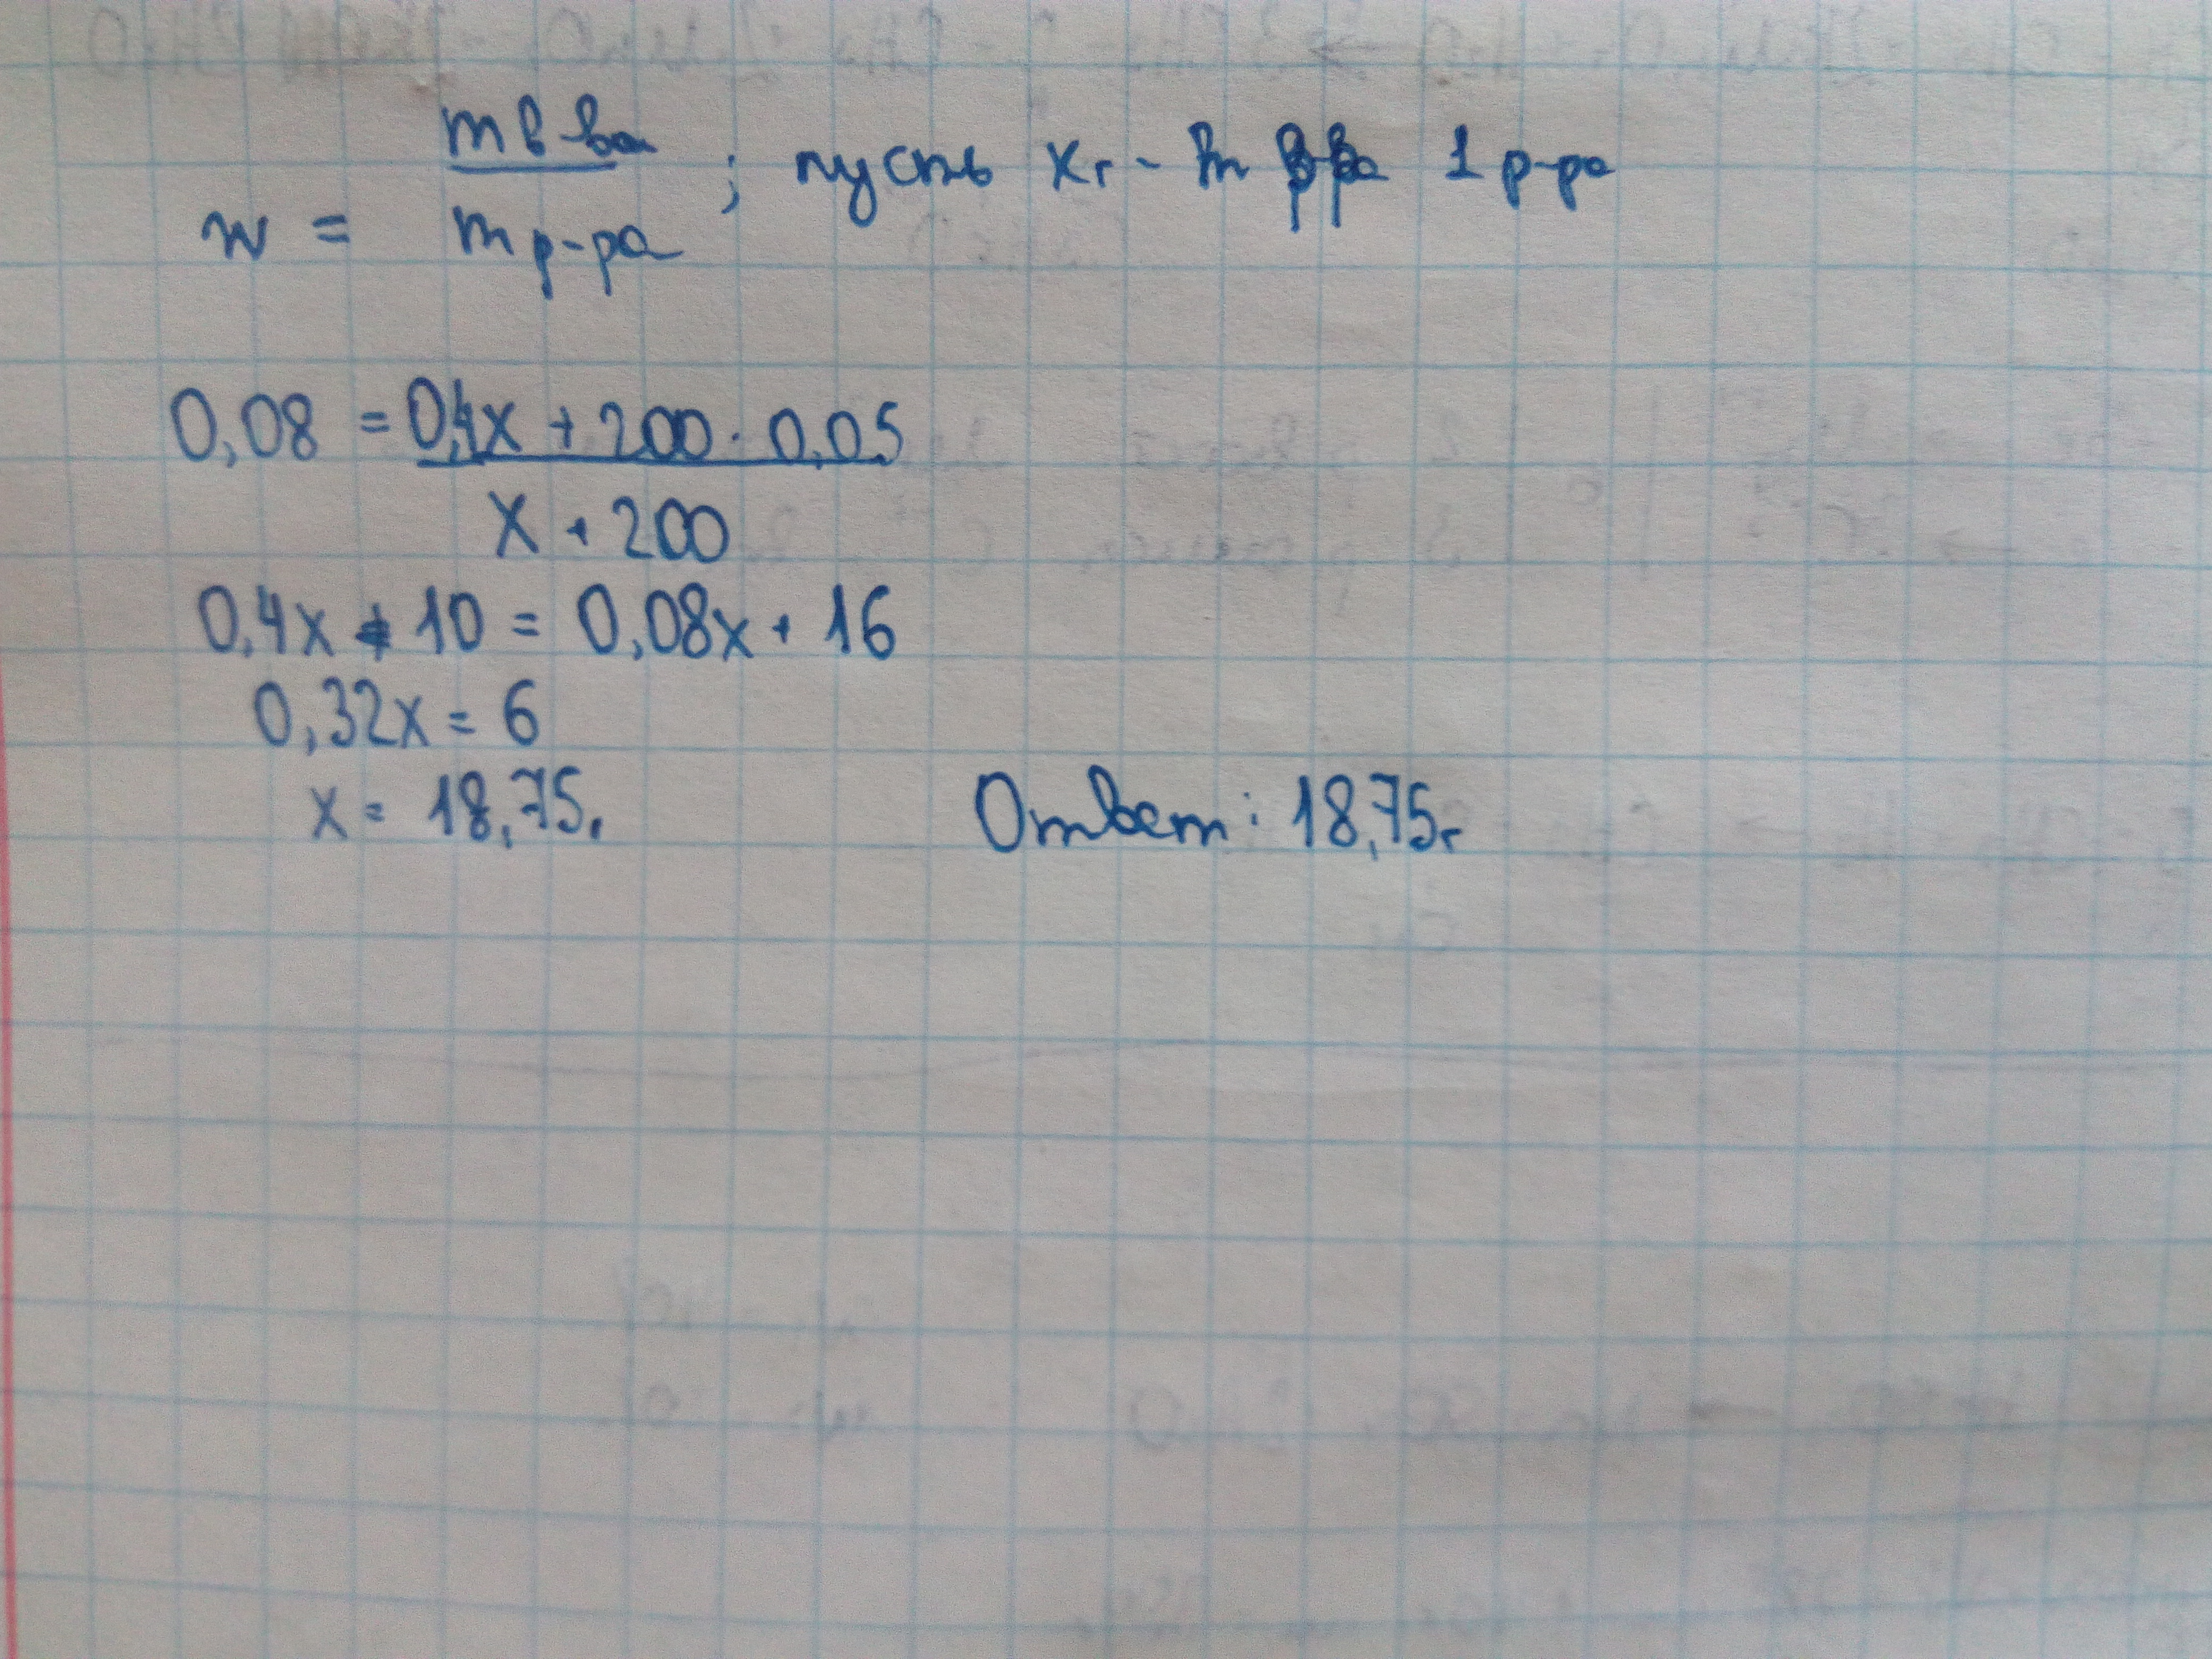 w = m в-ва / m р-ра ; пусть xг - m 1 р-ра
0,08 = 0,4x + 200 · 0,05 / x + 200
0,4x + 10 = 0,08x + 16
0,32x = 6
x = 18,75г
Ответ: 18,75г